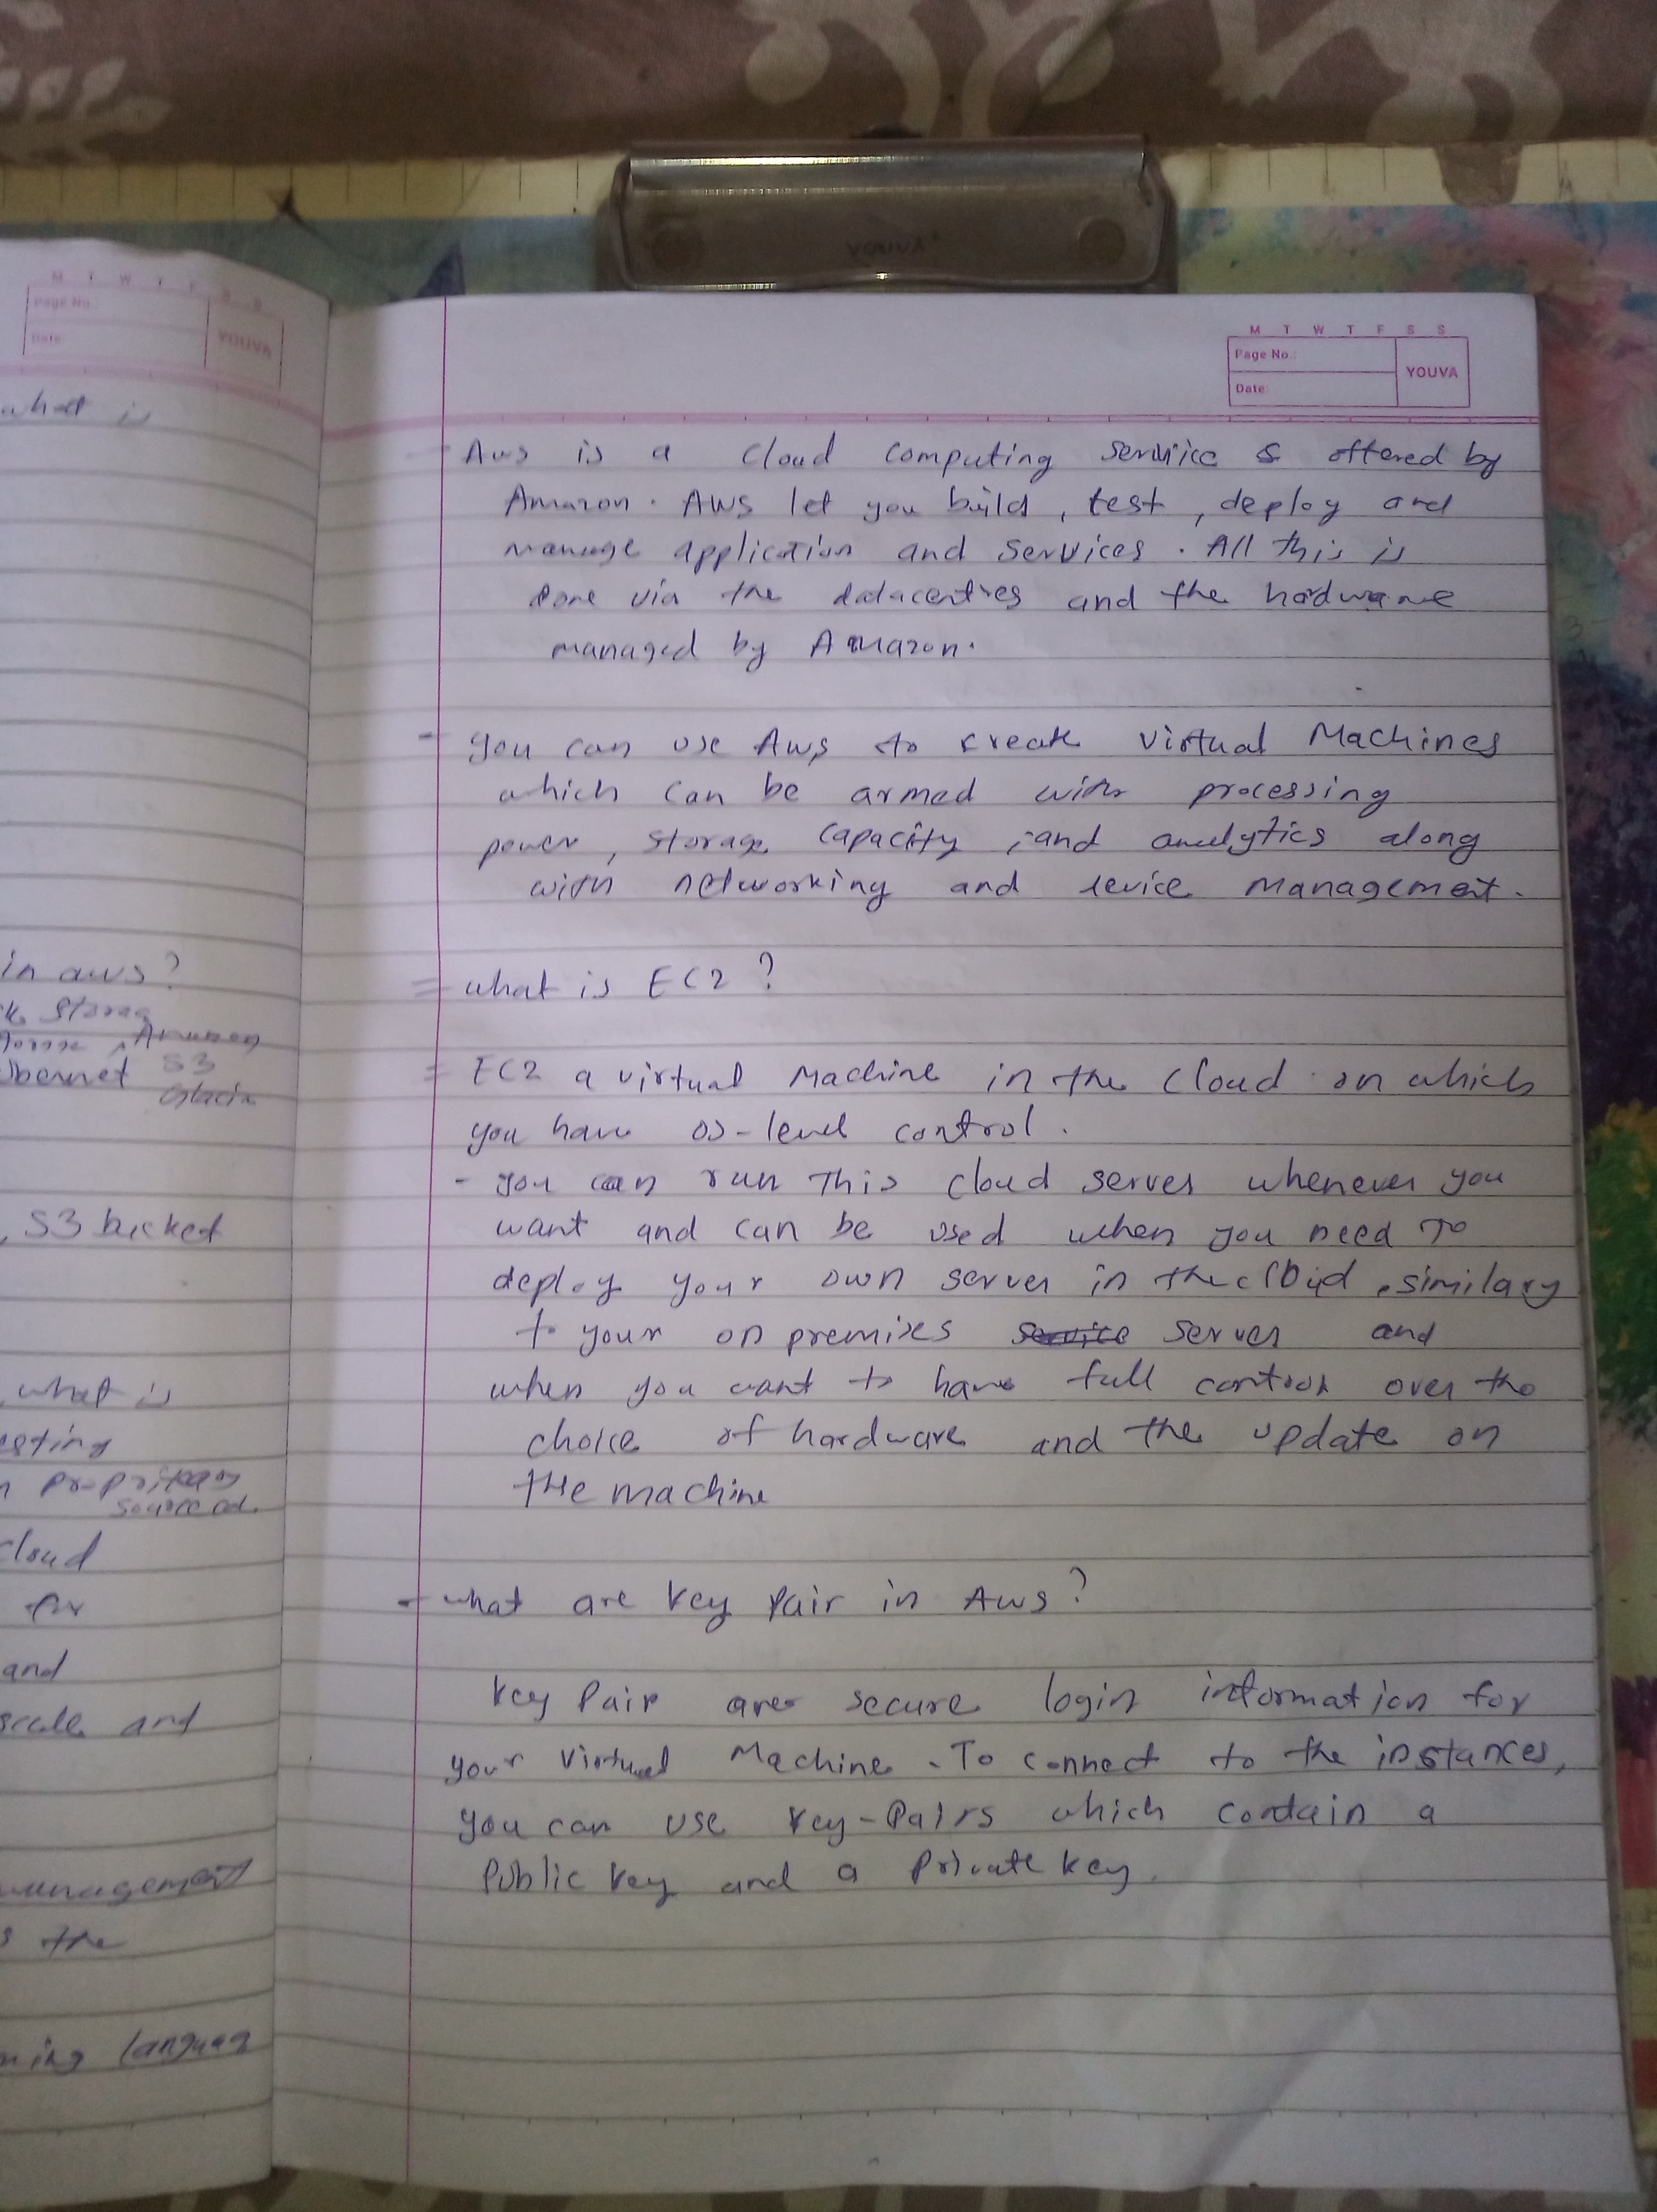 YOUVA
M T W T F S S
Page No.
Date:
YOUVA
what is
in aws?
Storag
Amazon
S3
S3 bucket
what is
cloud
for
and
scale and
management
the
M T W T F S S
Page No.:
Date:
YOUVA
- Aws is a cloud computing service & offered by
Amazon. AWS let you build, test, deploy and
manage application and services. All this is
done via the datacentres and the hardware
managed by Amazon.
- you can use Aws to create virtual Machines
which can be armed with processing
power, storage capacity, and analytics along
with networking and device management.
= what is EC2?
= EC2 a virtual Machine in the cloud on which
you have os-level control.
- you can run this cloud server whenever you
want and can be used when you need to
deploy your own server in the cloud, similary
to your on premises service server and
when you want to have full control over the
choice of hardware and the update on
the machine
- what are key pair in Aws?
key Pair are secure login information for
your Virtual Machine. To connect to the instances,
you can use key-Pairs which contain a
Public key and a Private key.